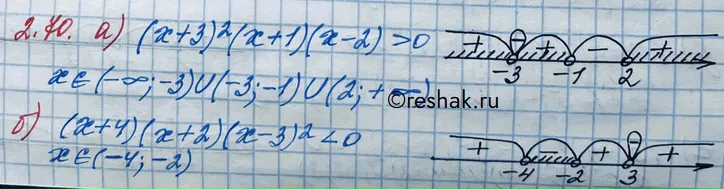 2.70. а) (x+3)²(x+1)(x-2) >0
+ + − +
-3 -1 2
x∈(-∞;-3)∪(-3;-1)∪(2;+∞)
©reshak.ru
б) (x+4)(x+2)(x-3)² <0
x∈(-4;-2)
+ − + +
-4 -2 3